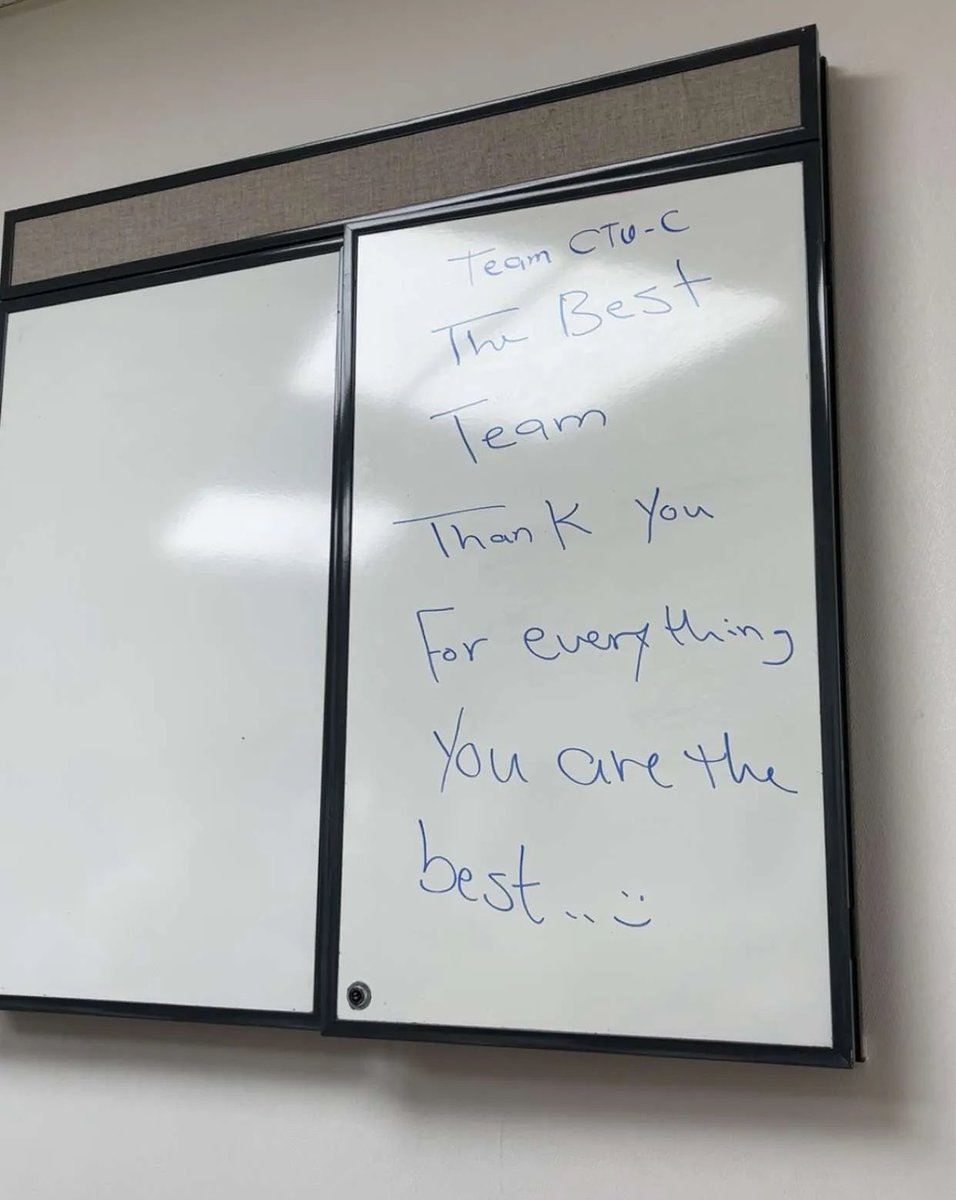 Team CTU-C
The Best
Team
Thank You
For everything
You are the
best.. :)